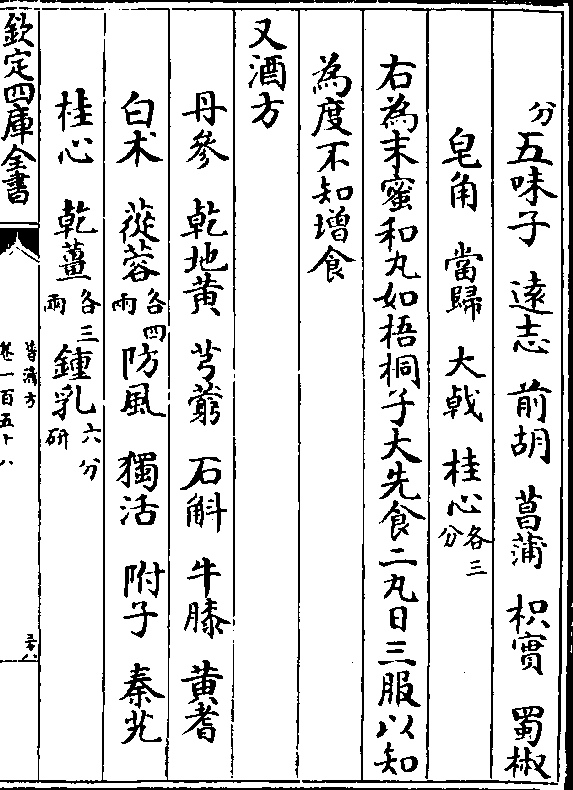 分五味子 遠志 前胡 菖蒲 枳實 蜀椒
皂角 當歸 大戟 桂心各三分
右為末蜜和丸如梧桐子大先食二丸日三服以知
為度不知增食
又酒方
丹參 乾地黄 芎藭 石斛 牛膝 黄耆
白术 蓯蓉各四兩 防風 獨活 附子 秦艽
桂心 乾薑各三兩 鍾乳六分研
欽定四庫全書
普濟方
卷一百五十八